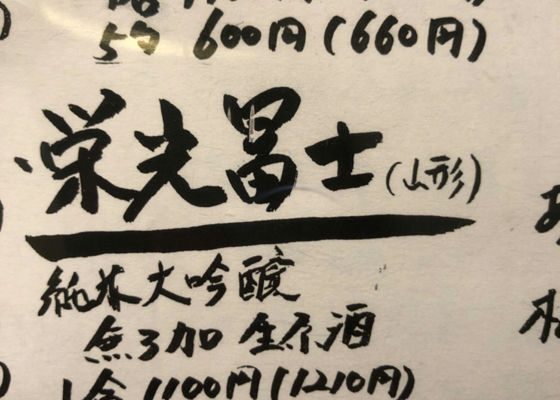 5勺 600円(660円)
栄光冨士(山形)
純米大吟醸
無ろ加 生原酒
1合 1100円(1210円)